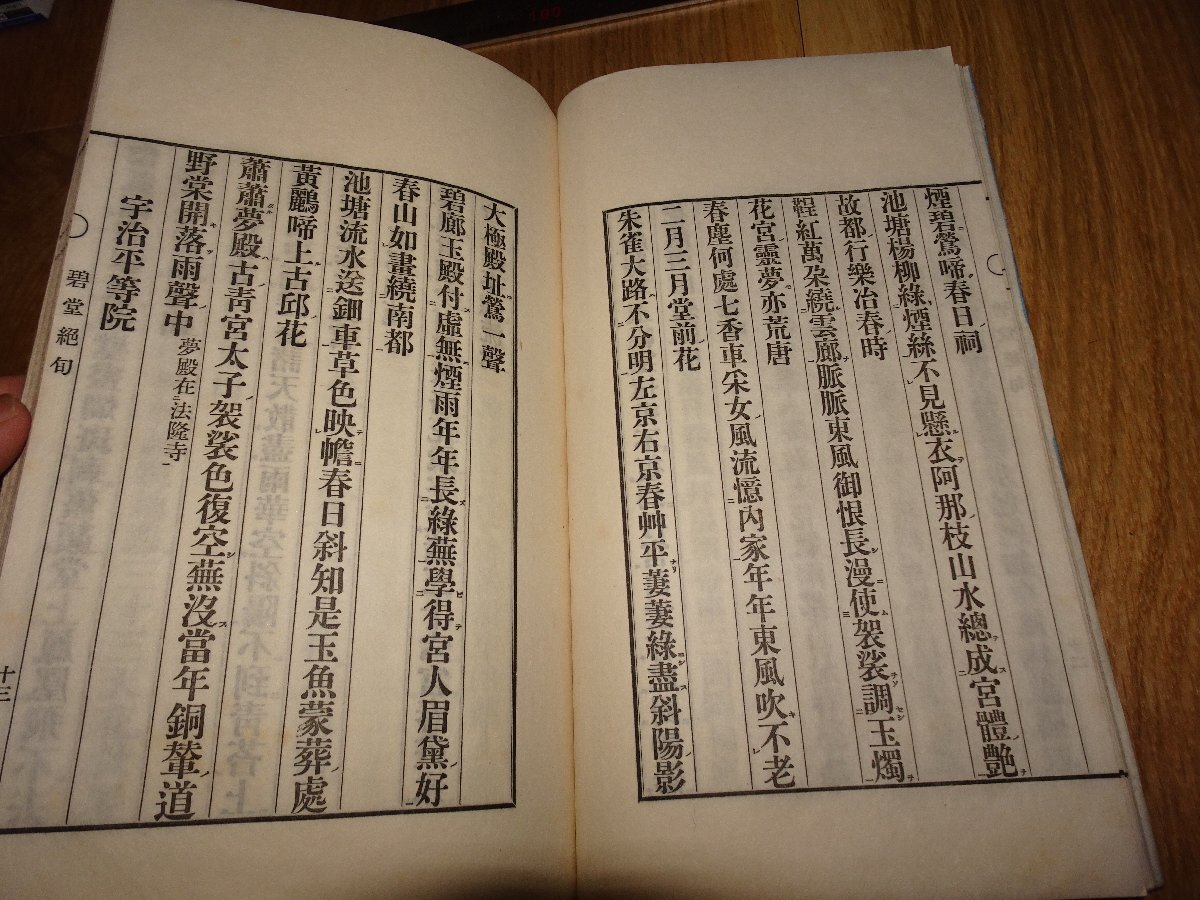 煙碧鶯啼春日祠
池塘楊柳綠煙絲不見懸衣阿那枝山水總成宮體艷
故都行樂冶春時
鞓紅萬朶繞雲廊脈脈東風御恨長漫使袈裟調玉燭
花宮靈夢亦荒唐
春塵何處七香車采女風流憶內家年年東風吹不老
二月三月堂前花
朱雀大路不分明左京右京春艸平萋萋綠盡斜陽影
大極殿址鶯一聲
碧廊玉殿付虛無煙雨年年長綠蕪學得宮人眉黛好
春山如畫繞南都
池塘流水送鈿車草色映幨春日斜知是玉魚蒙葬處
黃鸝啼上古邱花
蕭蕭夢殿古靑宮太子袈裟色復空蕪沒當年銅輦道
野棠開落雨聲中 夢殿在法隆寺
宇治平等院
碧堂絕句
十三